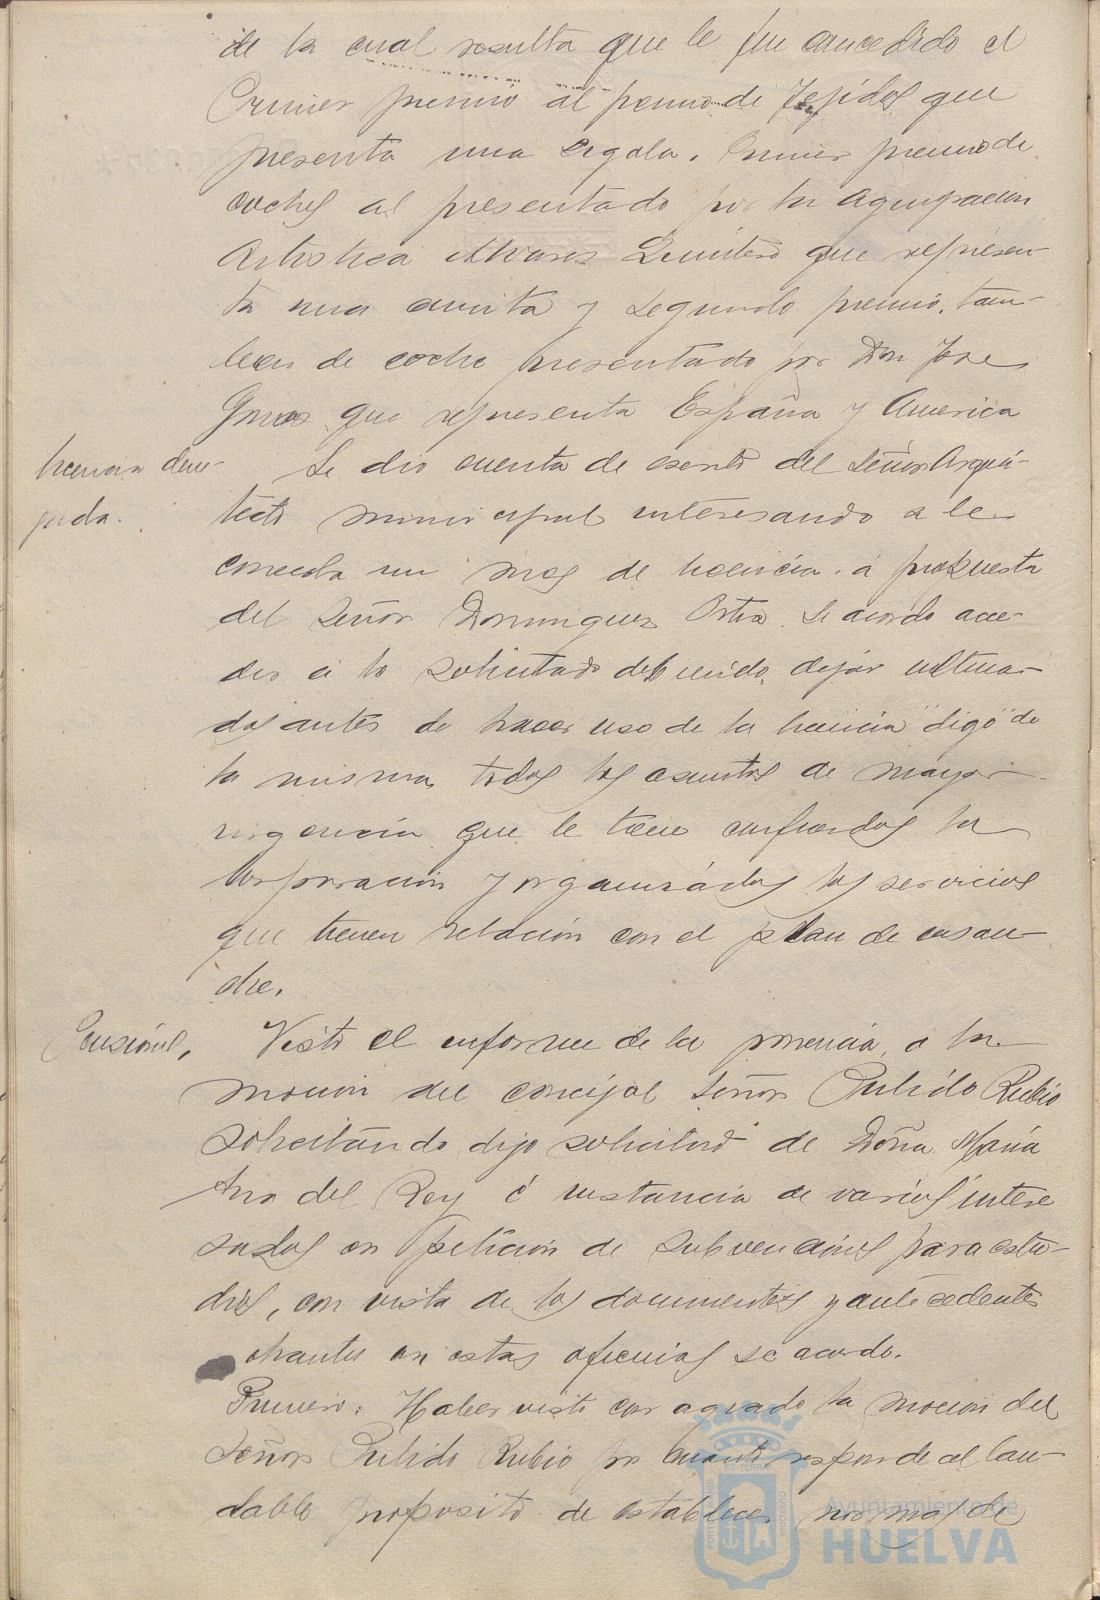 de la cual resulta que le fue concedido el
Primer premio al premio de Tejidos que
presenta una regata. Primer premio de
coches al presentado por la Agrupacion
Artistica Alvarez Quintero que represen-
ta una carreta y segundo premio, tam-
bien de coche presentado por Don Jose
que representa España y America
licencia
pida.
Se dio cuenta de escrito del Señor Arqui-
tecto municipal interesando se le
conceda un mes de licencia. a propuesta
del Señor Dominguez Ortiz. Se acordo acce-
der a lo solicitado debiendo, dejar ultima-
dos antes de hacer uso de la licencia "digo" de
la misma, todos los asuntos de mayor
urgencia que le tiene confiados la
Corporacion y organizados los servicios
que tienen relacion con el plan de ensan-
che.
Pensiones,
Visto el informe de la ponencia, a la
mocion del concejal Señor Pulido Rubio
solicitando digo solicitud de Doña Maria
Ana del Rey é instancia de varios intere
sados en peticion de subvenciones para estu-
dios, con vista de los documentos y antecedentes
obrantes en estas oficinas se acordo.
Primero: Haber visto con agrado la mocion del
Señor Pulido Rubio por cuanto responde al lau-
dable proposito de establecer normas de
Ayuntamiento de
HUELVA